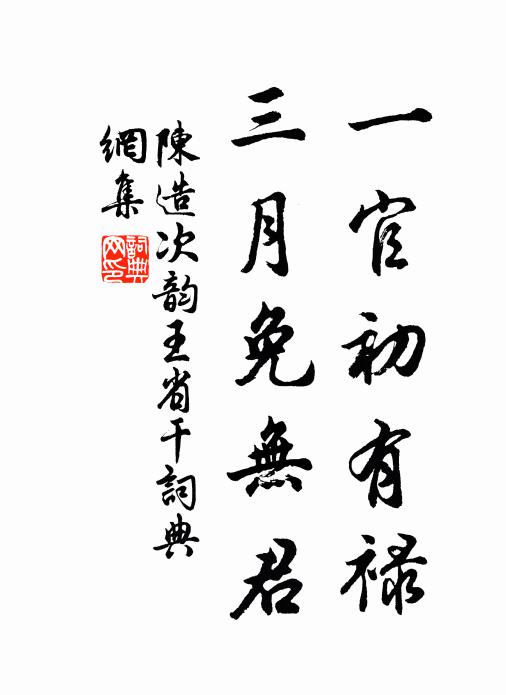 一官初有祿
三月免無君
陳造次韵王省干詞典
網集
詞典
網印